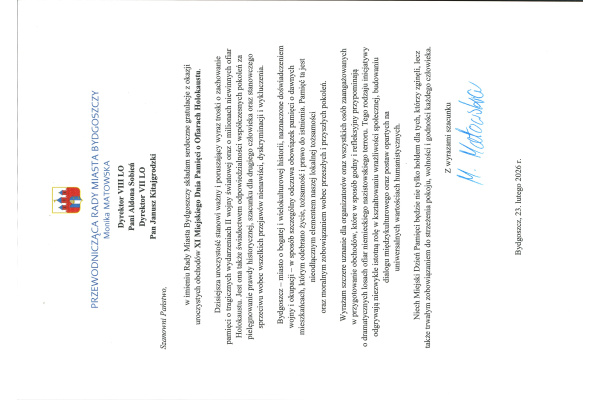 PRZEWODNICZĄCA RADY MIASTA BYDGOSZCZY
Monika MATOWSKA
Dyrektor VIII LO
Pani Aldona Sobień
Dyrektor VII LO
Pan Janusz Kitajgrodzki
Szanowni Państwo,
w imieniu Rady Miasta Bydgoszczy składam serdeczne gratulacje z okazji
uroczystych obchodów XI Miejskiego Dnia Pamięci o Ofiarach Holokaustu.
Dzisiejsza uroczystość stanowi ważny i poruszający wyraz troski o zachowanie
pamięci o tragicznych wydarzeniach II wojny światowej oraz o milionach niewinnych ofiar
Holokaustu. Jest ona także świadectwem odpowiedzialności współczesnych pokoleń za
pielęgnowanie prawdy historycznej, szacunku dla drugiego człowieka oraz stanowczego
sprzeciwu wobec wszelkich przejawów nienawiści, dyskryminacji i wykluczenia.
Bydgoszcz – miasto o bogatej i wielokulturowej historii, naznaczone doświadczeniem
wojny i okupacji – w sposób szczególny odczuwa obowiązek pamięci o dawnych
mieszkańcach, którym odebrano życie, tożsamość i prawo do istnienia. Pamięć ta jest
nieodłącznym elementem naszej lokalnej tożsamości
oraz moralnym zobowiązaniem wobec przeszłych i przyszłych pokoleń.
Wyrażam szczere uznanie dla organizatorów oraz wszystkich osób zaangażowanych
w przygotowanie obchodów, które w sposób godny i refleksyjny przypominają
o dramatycznych losach ofiar niemieckiego nazistowskiego terroru. Tego rodzaju inicjatywy
odgrywają niezwykle istotną rolę w kształtowaniu wrażliwości społecznej, budowaniu
dialogu międzykulturowego oraz postaw opartych na
uniwersalnych wartościach humanistycznych.
Niech Miejski Dzień Pamięci będzie nie tylko hołdem dla tych, którzy zginęli, lecz
także trwałym zobowiązaniem do strzeżenia pokoju, wolności i godności każdego człowieka.
Z wyrazami szacunku
M. Matowska
Bydgoszcz, 23. lutego 2026 r.